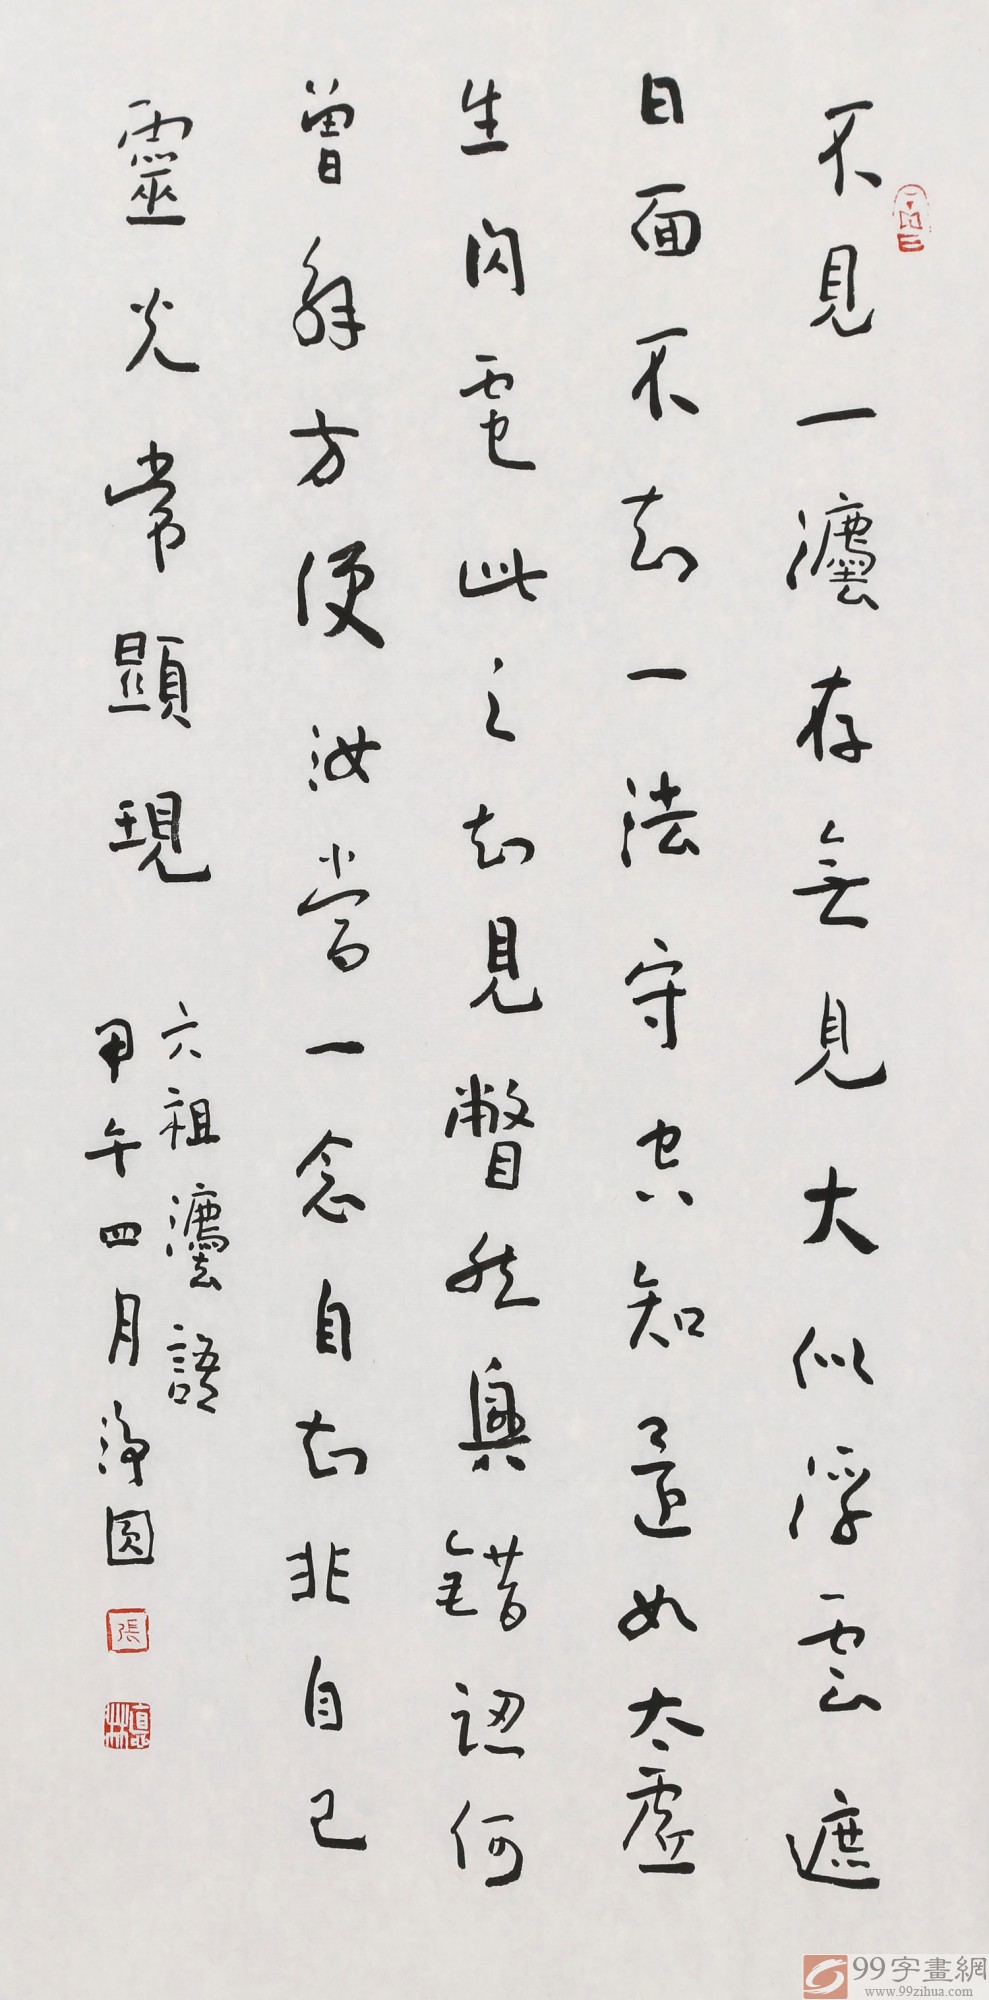 不見一灋存無見大似浮雲遮
日面不知一法守空知還如太虛
生閃電此之知見瞥然興錯認何
曾解方便汝當一念自知非自己
靈光常顯現
六祖灋語
甲午四月淨圓
張
99字畫網
www.99zihua.com